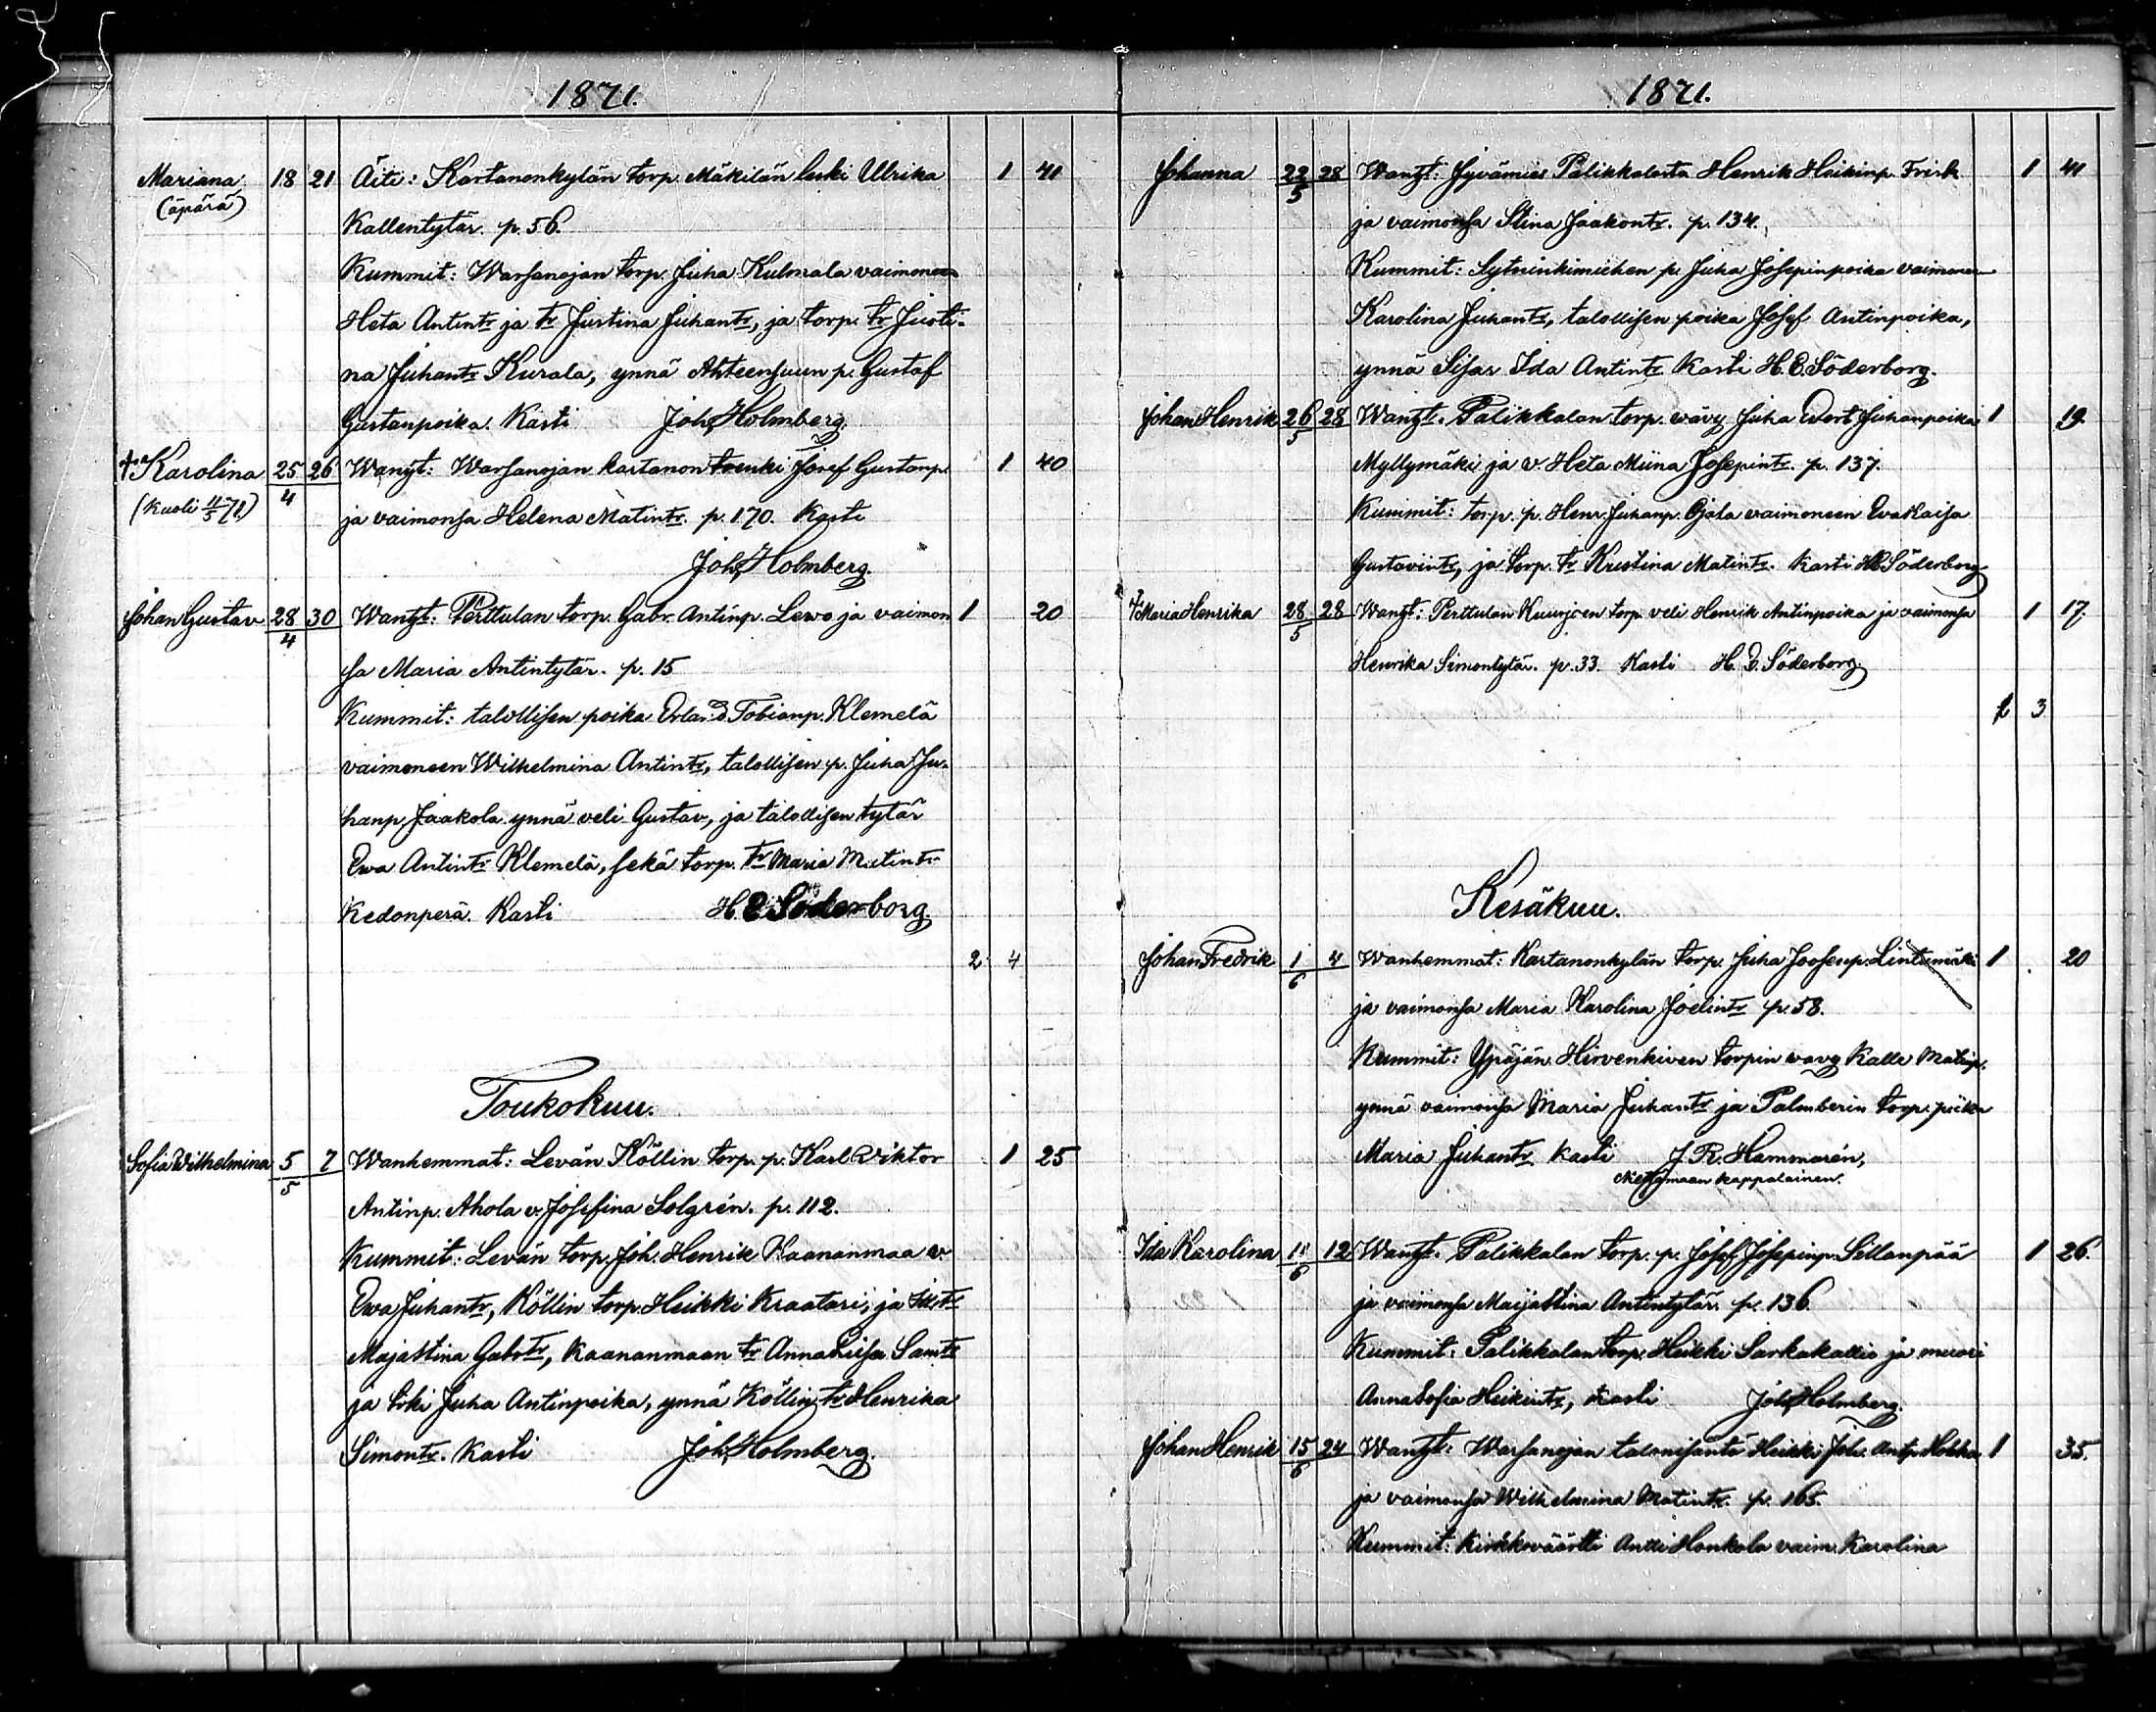 1871.
Mariana 18 21 Äiti: Kartanonkylän torp. Mäkilän leski Ulrika 1 41
(äpärä)
Kallentytär. p. 56.
Kummit: Warsanojan torp. Juha Kulmala vaimoneen
Heta Antintr ja tr Justina Juhantr, ja torp. tr Justi-
na Juhantr Kurala, ynnä Ahteensuun p. Gustaf
Gustanpoika. Kasti Joh. Holmberg.
† Karolina 25/4 26 Wanht: Warsanojan kartanon trenki Josef Gustanp. 1 40
(kuoli 11/5 71.)
ja vaimonsa Helena Matintr. p. 170. Kasti
Joh. Holmberg.
Johan Gustav 28/4 30 Wanht: Perttulan torp. Gabr. Antinp. Lewo ja vaimon 1 20
sa Maria Antintytär. p. 15
Kummit: talollisen poika Orland Tobianp. Klemelä
vaimoneen Wilhelmina Antintr, talollisen p. Juha Ju-
hanp. Jaakola ynnä veli Gustav, ja talollisen tytär
Ewa Antintr Klemelä, sekä torp. tr Maria Matintr
Kedonperä. Kasti H. E. Söderborg.
2 4
Toukokuu.
Sofia Wilhelmina 5/5 7 Wanhemmat: Levän Köllin torp. p. Karl Viktor 1 25
Antinp. Ahola v. Josefina Solgrén. p. 112.
Kummit: Levän torp. Joh. Henrik Kaananmaa v.
Ewa Juhantr, Köllin torp. Heikki Kraatari, ja
Majastina Gabrtr, Kaananmaan tr Anna Liisa Samtr
ja Juha Antinpoika, ynnä Köllin tr Henrika
Simontr. Kasti Joh. Holmberg.
1871.
Johanna 22/5 28 Wanht: Jyvämies Palikkalasta Henrik Heikinp. Frisk 1 41
ja vaimonsa Stina Jaakontr. p. 134.
Kummit: p. Juha Josepinpoika vaimoneen
Karolina Juhantr, talollisen poika Josef Antinpoika,
ynnä Sisar Ida Antintr Kasti H. E. Söderborg.
Johan Henrik 26/5 28 Wanht: Palikkalan torp. wävy Juha Evert Juhanpoika 1 19.
Myllymäki ja v. Heta Miina Josepintr. p. 137.
Kummit: torp. p. Henr. Juhanp. Ojala vaimoneen Eva Kaisa
Gustavintr, ja torp. tr Kristina Matintr. Kasti HE Söderborg
† Maria Henrika 28/5 28 Wanht: Perttulan Kuusjoen torp. veli Henrik Antinpoika ja vaimonsa 1 17.
Henrika Simontytär. p. 33. Kasti H. E. Söderborg
1 3
Kesäkuu.
Johan Fredrik 1/6 4 Wanhemmat: Kartanonkylän torp. Juha Joosenp. Lintumäki 1 20
ja vaimonsa Maria Karolina Joelintr p. 58.
Kummit: Ypäjän Hirvenkiven torpin wävy Kalle Matinp.
ynnä vaimonsa Maria Juhantr ja Palmberin torp. piika
Maria Juhantr. Kasti J. R. Hammarén,
kappalainen.
Ida Karolina 11/6 12 Wanht. Palikkalan torp. p. Josef Josepinp. Sillanpää 1 26.
ja vaimonsa Maijastina Antintytär. p. 136
Kummit: Palikkalan torp. Heikki Sarkakallio ja muori
Anna Sofia Heikintr, Kasti Joh. Holmberg.
Johan Henrik 15/6 24 Wanht: Warsanojan talonisäntä Heikki Joh. Antp. 1 35.
ja vaimonsa Wilhelmina Matintr. p. 165.
Kummit: Kirkkoväärtti Antti Honkola vaim. Karolina